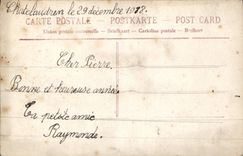 Châtelaudren le 29 décembre 1918.
CARTE POSTALE POSTKARTE POST CARD
Union postale universelle - Briefkaart - Cartolina postale - Brefkort
Cher Pierre,
Bonne et heureuse année
Ta petite amie
Raymonde.